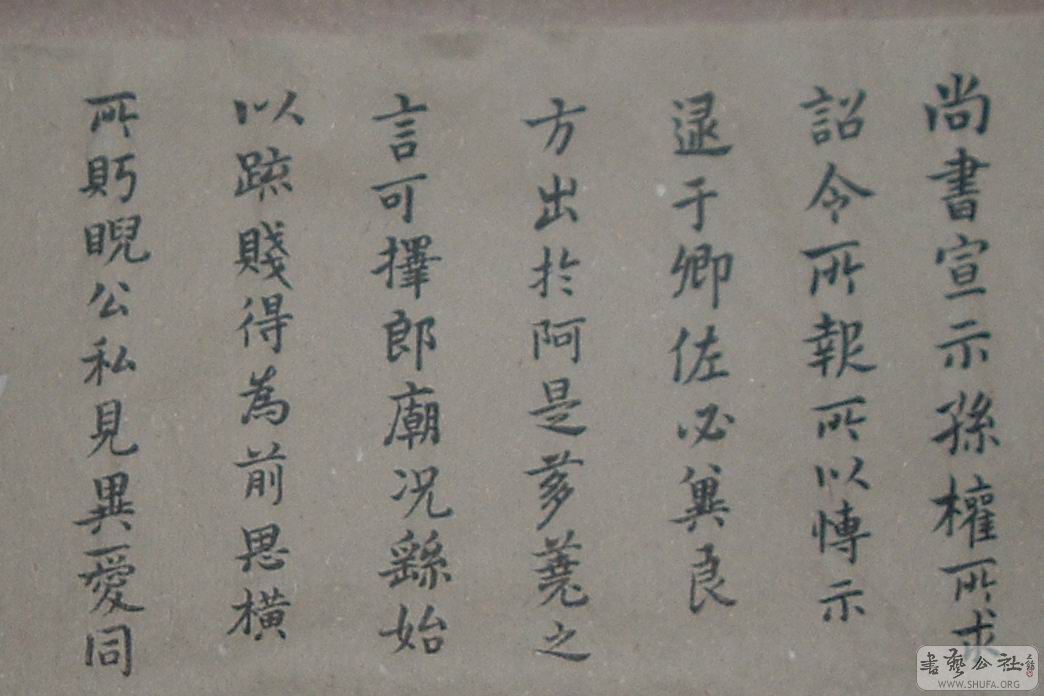 尚書宣示孫權所求
詔令所報所以博示
逮于卿佐必冀良
方出於阿是芻蕘之
言可擇郎廟況繇始
以疏賤得為前恩橫
所眄睨公私見異愛同
書藝公社
WWW.SHUFA.ORG